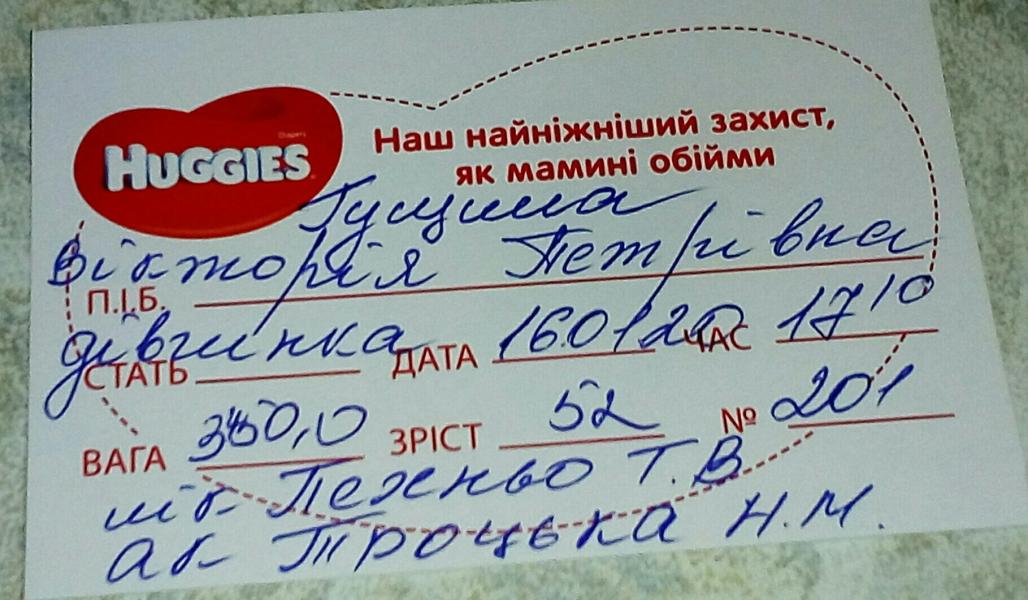 Diapers
HUGGIES
Наш найніжніший захист,
як мамині обійми
Гущина
Вікторія Петрівна
П.І.Б.
дівчинка
СТАТЬ ДАТА 160120 ЧАС 17 10
ВАГА ЗРІСТ 52 № 201
Т.В
ак Троцька Н.М.